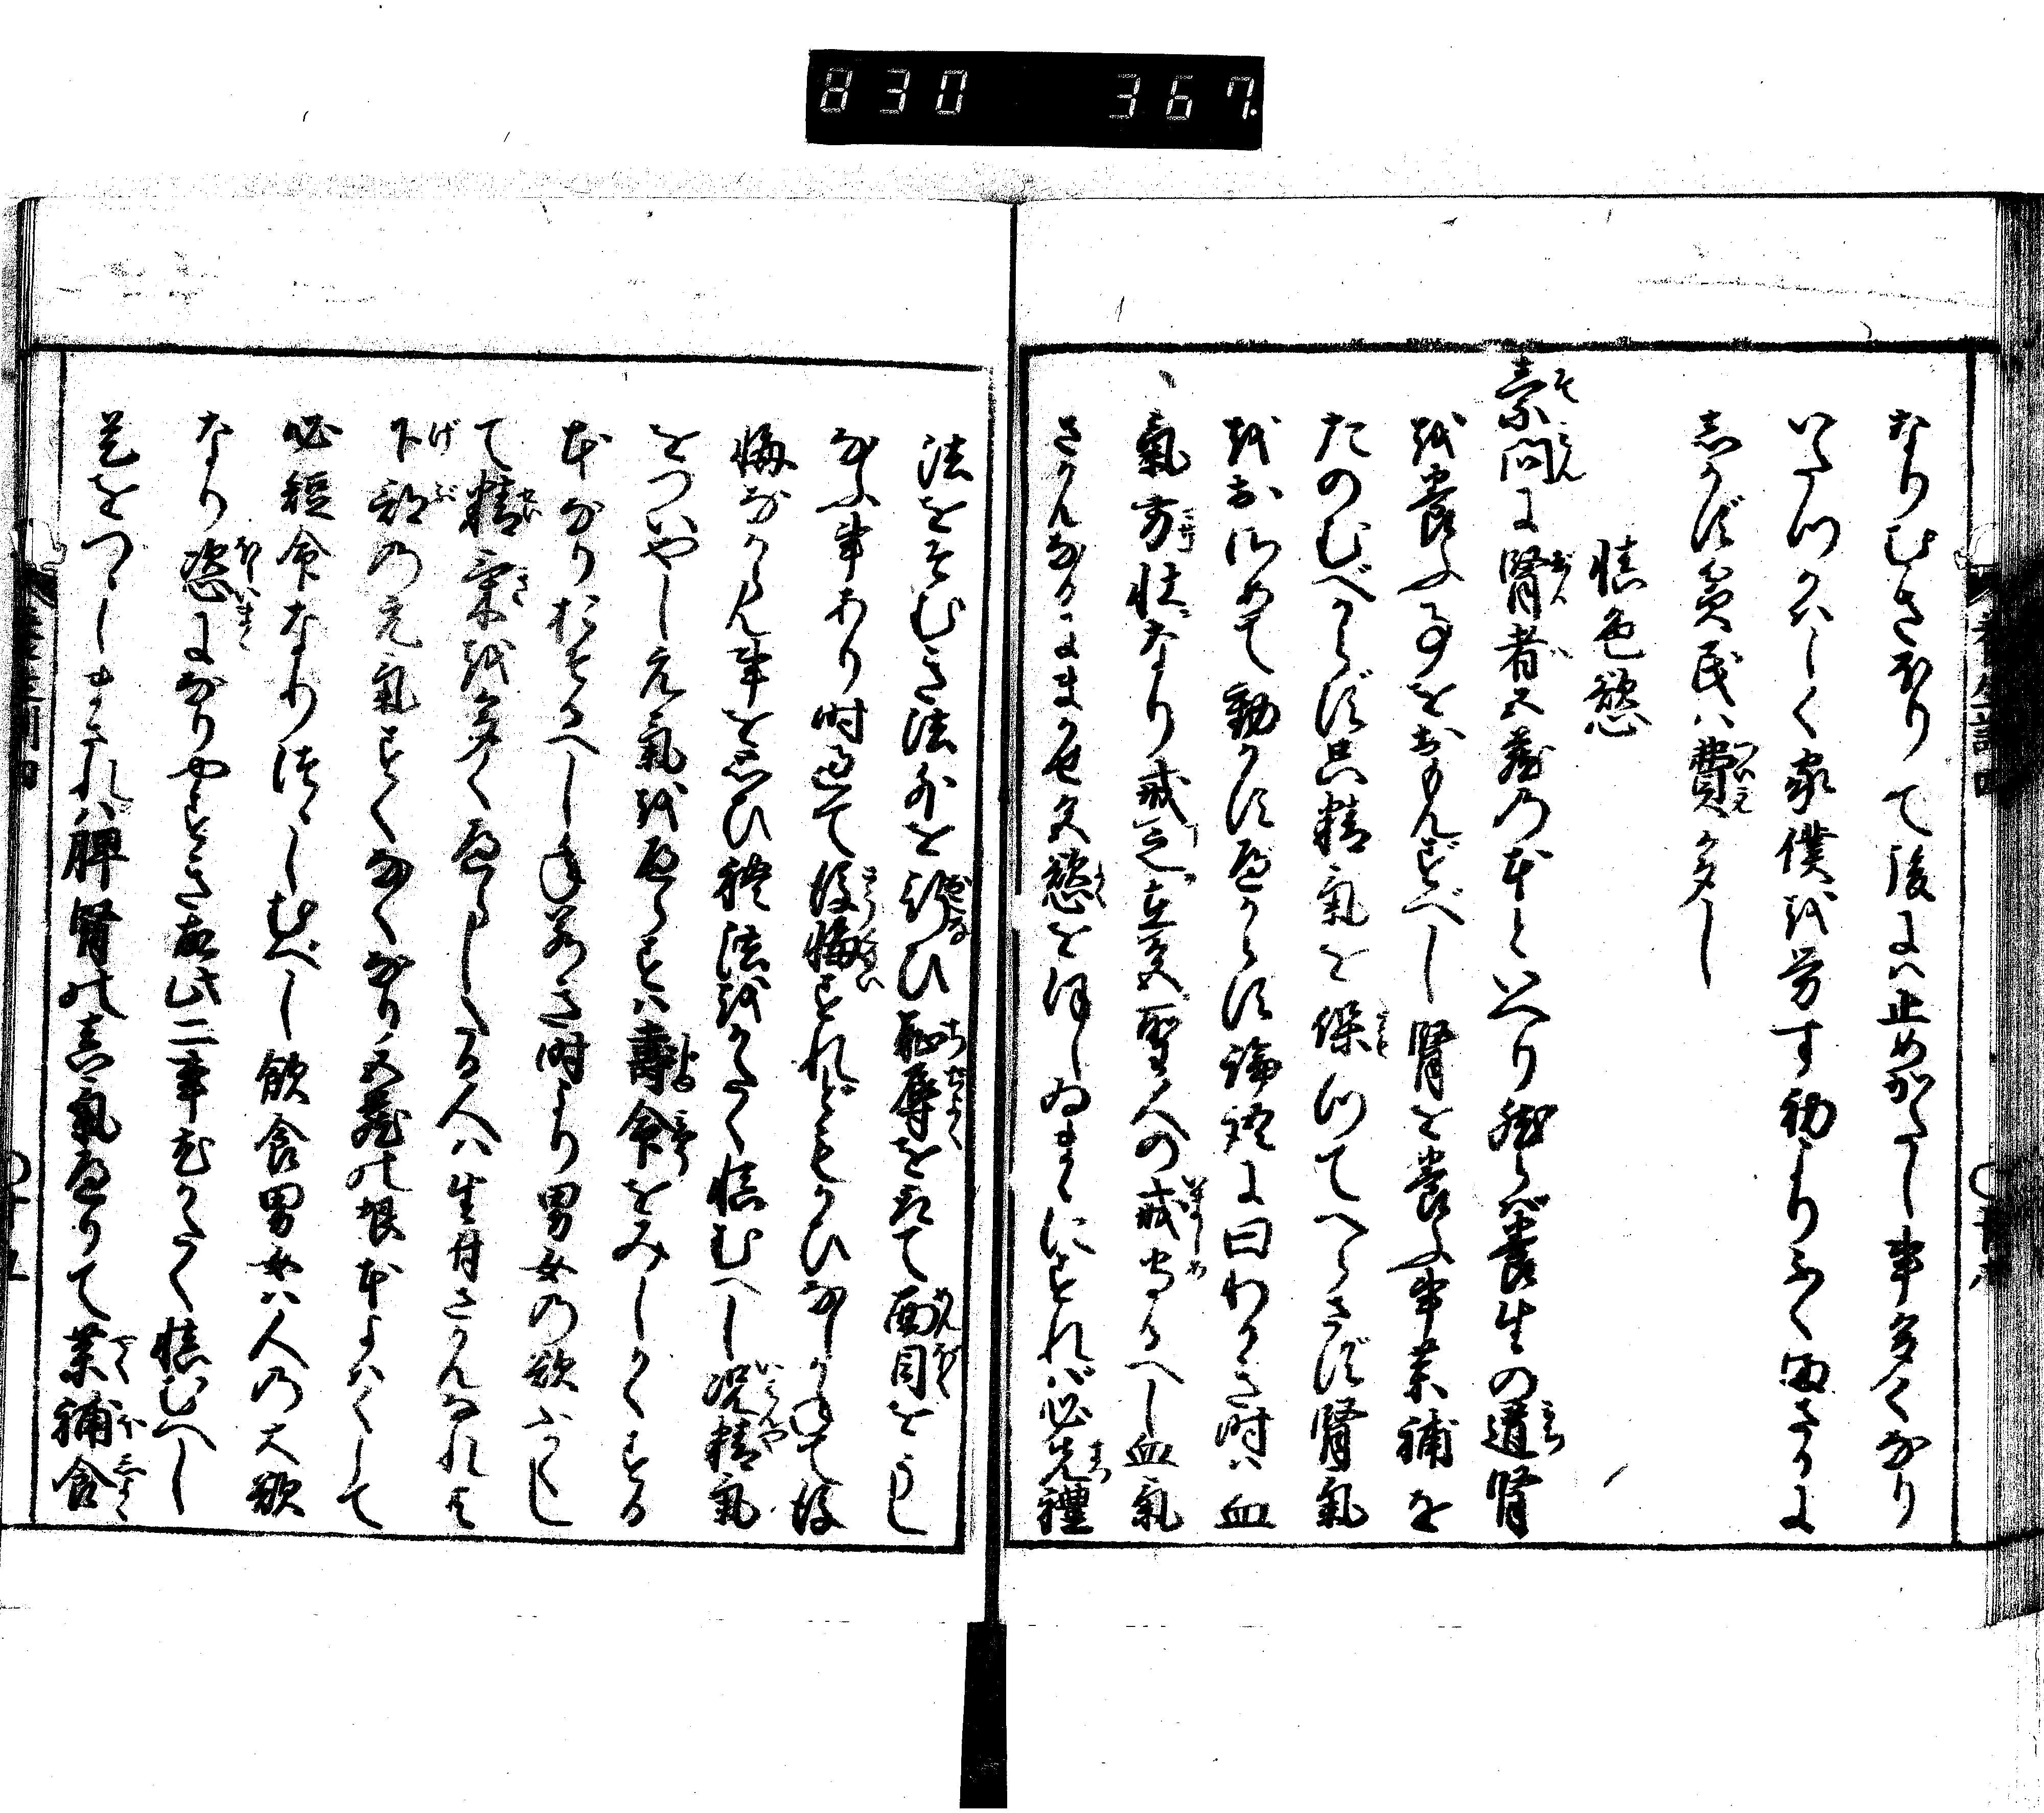 830 367
なりむさほりて後には止めがたし事多くなり
いたつかハしく家僕を労す初よりふくあさりに
しかず貧民ハ費多し
慎色慾
素問に腎者五蔵の本といへり然らバ養生の道腎
を養ふ事をおもんずべし腎を養ふ事薬補を
たのむべからず只精氣を保つてへらさず腎氣
をおさめて動かすべからず論語に曰わかき時ハ血
氣方壮なり戒之在色聖人の戒守るへし血氣
さかんなるにまかせ色慾をほしゐまゝにすれバ必先禮
法をそむき法外を行ひ恥辱を取て面目をうし
なふ事あり時過て後悔すれどもかひなしかねて後
悔なからん事を思ひ禮法をかたく慎むへし况精氣
をつひやし元氣をへらすハ壽命をみしかくする
本なりおそるへし年若き時より男女の欲ふかくし
て精氣を多くへらしたる人ハ生付さかんなれ共
下部の元氣すくなくなり五蔵の根本よハくして
必短命なりつゝしむべし飲食男女ハ人の大欲
なり恣になりやすき故此二事尤かたく慎むへし
是をつゝしまされハ脾腎の真氣へりて薬補食